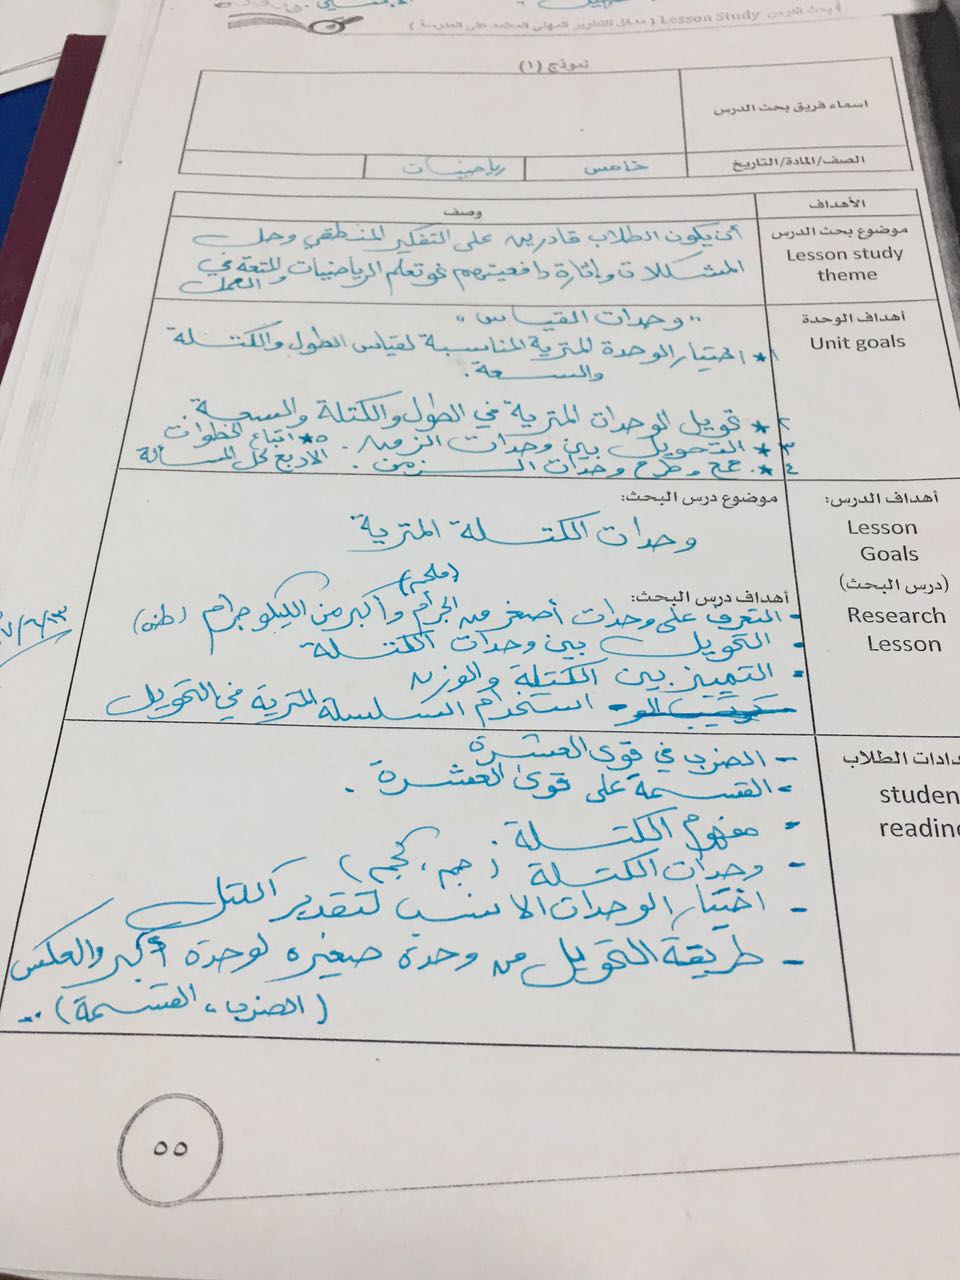 بحث الدرس Lesson Study ( مدخل للتطوير المهني المعتمد على المدرسة )
نموذج (١)
اسماء فريق بحث الدرس
الصف/المادة/التاريخ
خامس
رياضيات
الأهداف
وصف
موضوع بحث الدرس
Lesson study
theme
أن يكون الطلاب قادرين على التفكير المنطقي وحل
المشكلات وإثارة دافعيتهم نحو تعلم الرياضيات والمتعة في
العمل
أهداف الوحدة
Unit goals
"وحدات القياس"
١* اختيار الوحدة المترية المناسبة لقياس الطول والكتلة
والسعة.
٢* تحويل الوحدات المترية في الطول والكتلة والسعة.
٣* التحويل بين وحدات الزمن.
٤* جمع وطرح وحدات الزمن.
٥* اتباع الخطوات
الأربع لحل المسألة
أهداف الدرس:
Lesson
Goals
(درس البحث)
Research
Lesson
موضوع درس البحث:
وحدات الكتلة المترية
أهداف درس البحث:
- التعرف على وحدات أصغر من الجرام (ملجم) وأكبر من الكيلوجرام (طن)
- التحويل بين وحدات الكتلة
- التمييز بين الكتلة والوزن
- استخدام السلسلة المترية في التحويل
دادات الطلاب
studen
readine
- الضرب في قوى العشرة
- القسمة على قوى العشرة .
- مفهوم الكتلة .
- وحدات الكتلة (جم ، كجم)
- اختيار الوحدات الانسب لتقدير الكتل
- طريقة التحويل من وحدة صغيره لوحدة أكبر والعكس
(الضرب ، القسمة) ..
٥٥